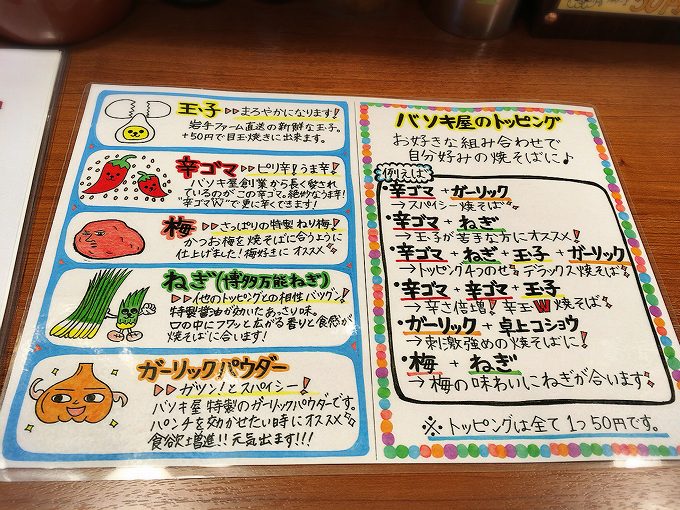 玉子 ▷▷まろやかになります!
岩手ファーム直送の新鮮な玉子。
+50円で目玉焼きに出来ます。
辛ゴマ ▷▷ピリ辛!うま辛!
バソキ屋創業から長く愛され
ているのがこの辛ゴマ。絶妙なうま辛!
"辛ゴマW"で更に辛くできます!
梅 ▷▷さっぱりの特製ねり梅!
かつお梅を焼そばに合うように
仕上げました!梅好きにオススメ
ねぎ(博多万能ねぎ)
▷▷他のトッピングとの相性バツグン!
特製醤油が効いたあっさり味。
口の中にフワッと広がる香りと食感が
焼そばに合います!
ガーリックパウダー
▷▷ガツン!とスパイシー!
バソキ屋特製のガーリックパウダーです。
パンチを効かせたい時にオススメ
食欲増進!!元気出ます!!!
バソキ屋のトッピング
お好きな組み合わせで
自分好みの焼そばに♪
例えば
・辛ゴマ+ガーリック
→スパイシー焼そば
・辛ゴマ+ねぎ
→玉子が苦手な方にオススメ!
・辛ゴマ+ねぎ+玉子+ガーリック
→トッピング4つのせ デラックス焼そば!
・辛ゴマ+辛ゴマ+玉子
→辛さ倍増!辛玉W焼そば
・ガーリック+卓上コショウ
→刺激強めの焼そばに!
・梅+ねぎ
→梅の味わいにねぎが合います
※トッピングは全て1つ50円です。